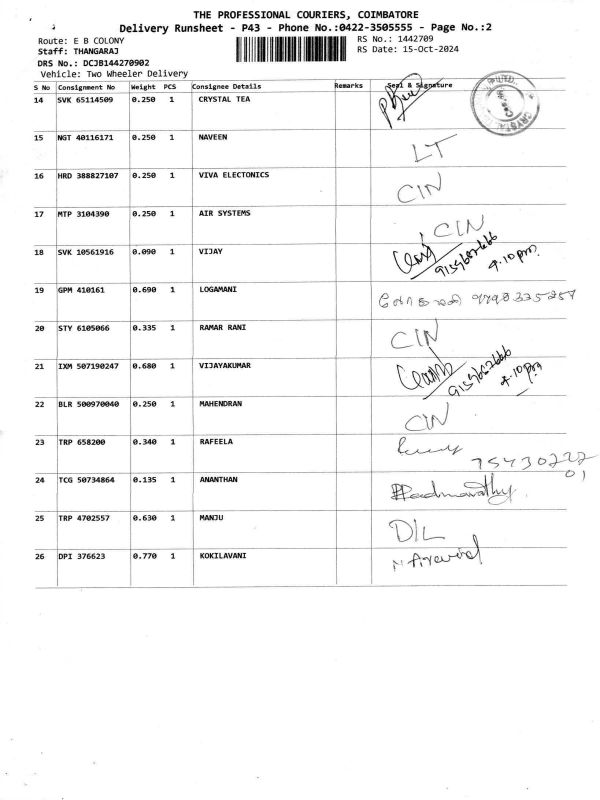 THE PROFESSIONAL COURIERS, COIMBATORE
Delivery Runsheet - P43 - Phone No.:0422-3505555 - Page No.:2
Route: E B COLONY
RS No.: 1442709
Staff: THANGARAJ
RS Date: 15-Oct-2024
DRS No.: DCJB144270902
Vehicle: Two Wheeler Delivery
S No Consignment No Weight PCS Consignee Details Remarks Seal & Signature
14 SVK 65114509 0.250 1 CRYSTAL TEA
15 NGT 40116171 0.250 1 NAVEEN LT
16 HRD 388827107 0.250 1 VIVA ELECTONICS CIN
17 MTP 3104390 0.250 1 AIR SYSTEMS CIN
18 SVK 10561916 0.090 1 VIJAY 9159682666 4.10pm
19 GPM 410161 0.690 1 LOGAMANI லோகமணி
20 STY 6105066 0.335 1 RAMAR RANI CIN
21 IXM 507190247 0.680 1 VIJAYAKUMAR 4.10pm
22 BLR 500970040 0.250 1 MAHENDRAN CIN
23 TRP 658200 0.340 1 RAFEELA
24 TCG 50734864 0.135 1 ANANTHAN Padmavathy
25 TRP 4702557 0.630 1 MANJU D/L
26 DPI 376623 0.770 1 KOKILAVANI N Aravind